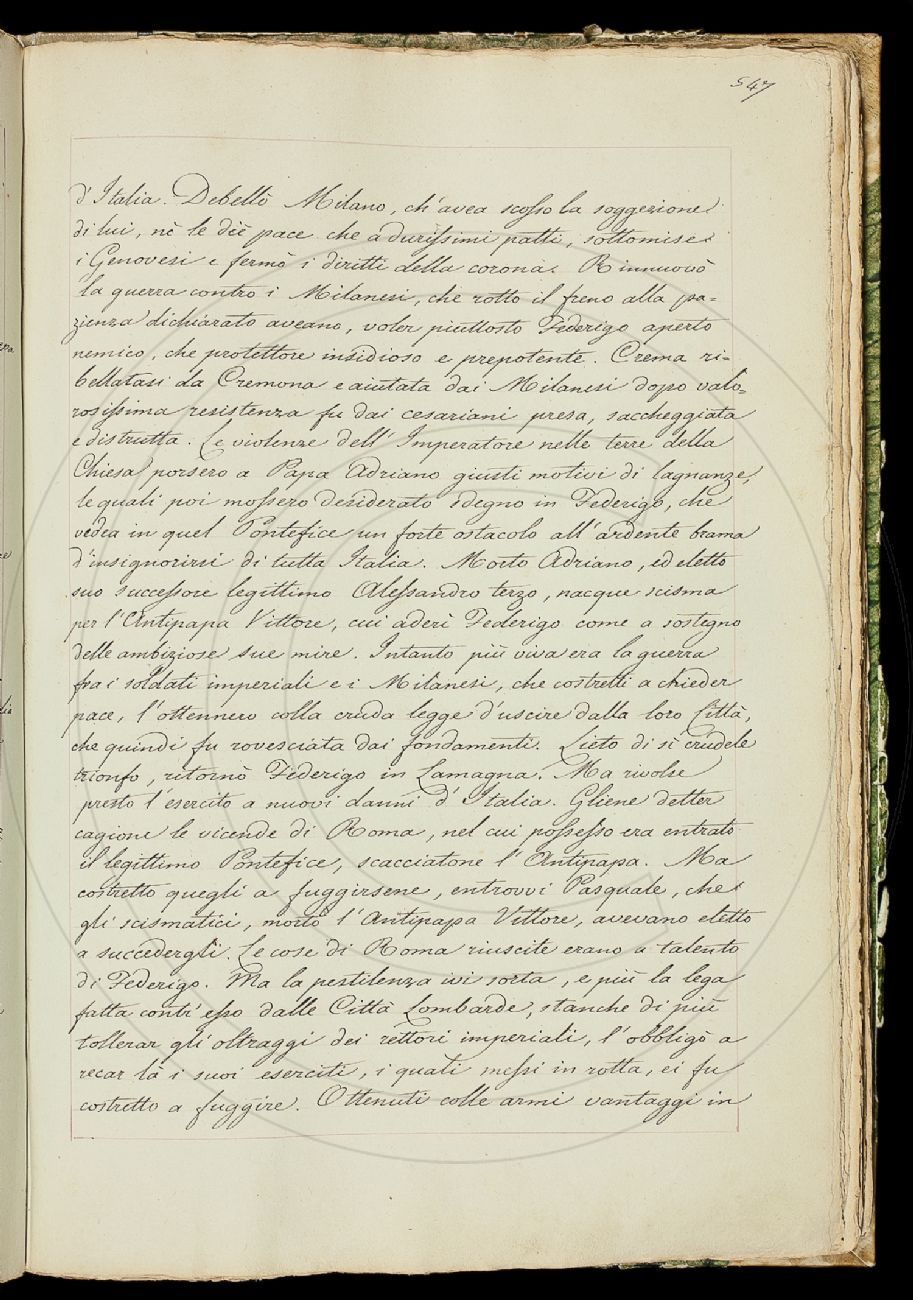 547
d'Italia. Debellò Milano, ch'avea scosso la soggezione
di lui, nè le diè pace che a durissimi patti, sottomise
i Genovesi e fermò i diritti della corona. Rinnuovò
la guerra contro i Milanesi, che rotto il freno alla pa=
zienza dichiarato aveano, voler piuttosto Federigo aperto
nemico, che protettore insidioso e prepotente. Crema ri=
bellatasi da Cremona e aiutata dai Milanesi dopo valo=
rosissima resistenza fu dai cesariani presa, saccheggiata
e distrutta. Le violenze dell'Imperatore nelle terre della
Chiesa porsero a Papa Adriano giusti motivi di lagnanze,
le quali poi mossero desiderato sdegno in Federigo, che
vedea in quel Pontefice un forte ostacolo all'ardente brama
d'insignorirsi di tutta Italia. Morto Adriano, ed eletto
suo successore legittimo Alessandro terzo, nacque scisma
per l'Antipapa Vittore, cui aderì Federigo come a sostegno
delle ambiziose sue mire. Intanto più viva era la guerra
fra i soldati imperiali e i Milanesi, che costretti a chieder
pace, l'ottennero colla cruda legge d'uscire dalla loro Città,
che quindi fu rovesciata dai fondamenti. Lieto di sì crudele
trionfo, ritornò Federigo in Lamagna. Ma rivolse
presto l'esercito a nuovi danni d'Italia. Gliene detter
cagione le vicende di Roma, nel cui possesso era entrato
il legittimo Pontefice, scacciatone l'Antipapa. Ma
costretto quegli a fuggirsene, entrovvi Pasquale, che
gli scismatici, morto l'Antipapa Vittore, avevano eletto
a succedergli. Le cose di Roma riuscite erano a talento
di Federigo. Ma la pestilenza ivi sorta, e più la lega
fatta contr'esso dalle Città Lombarde, stanche di più
tollerar gli oltraggi dei rettori imperiali, l'obbligò a
recar là i suoi eserciti, i quali messi in rotta, ei fu
costretto a fuggire. Ottenuti colle armi vantaggi in